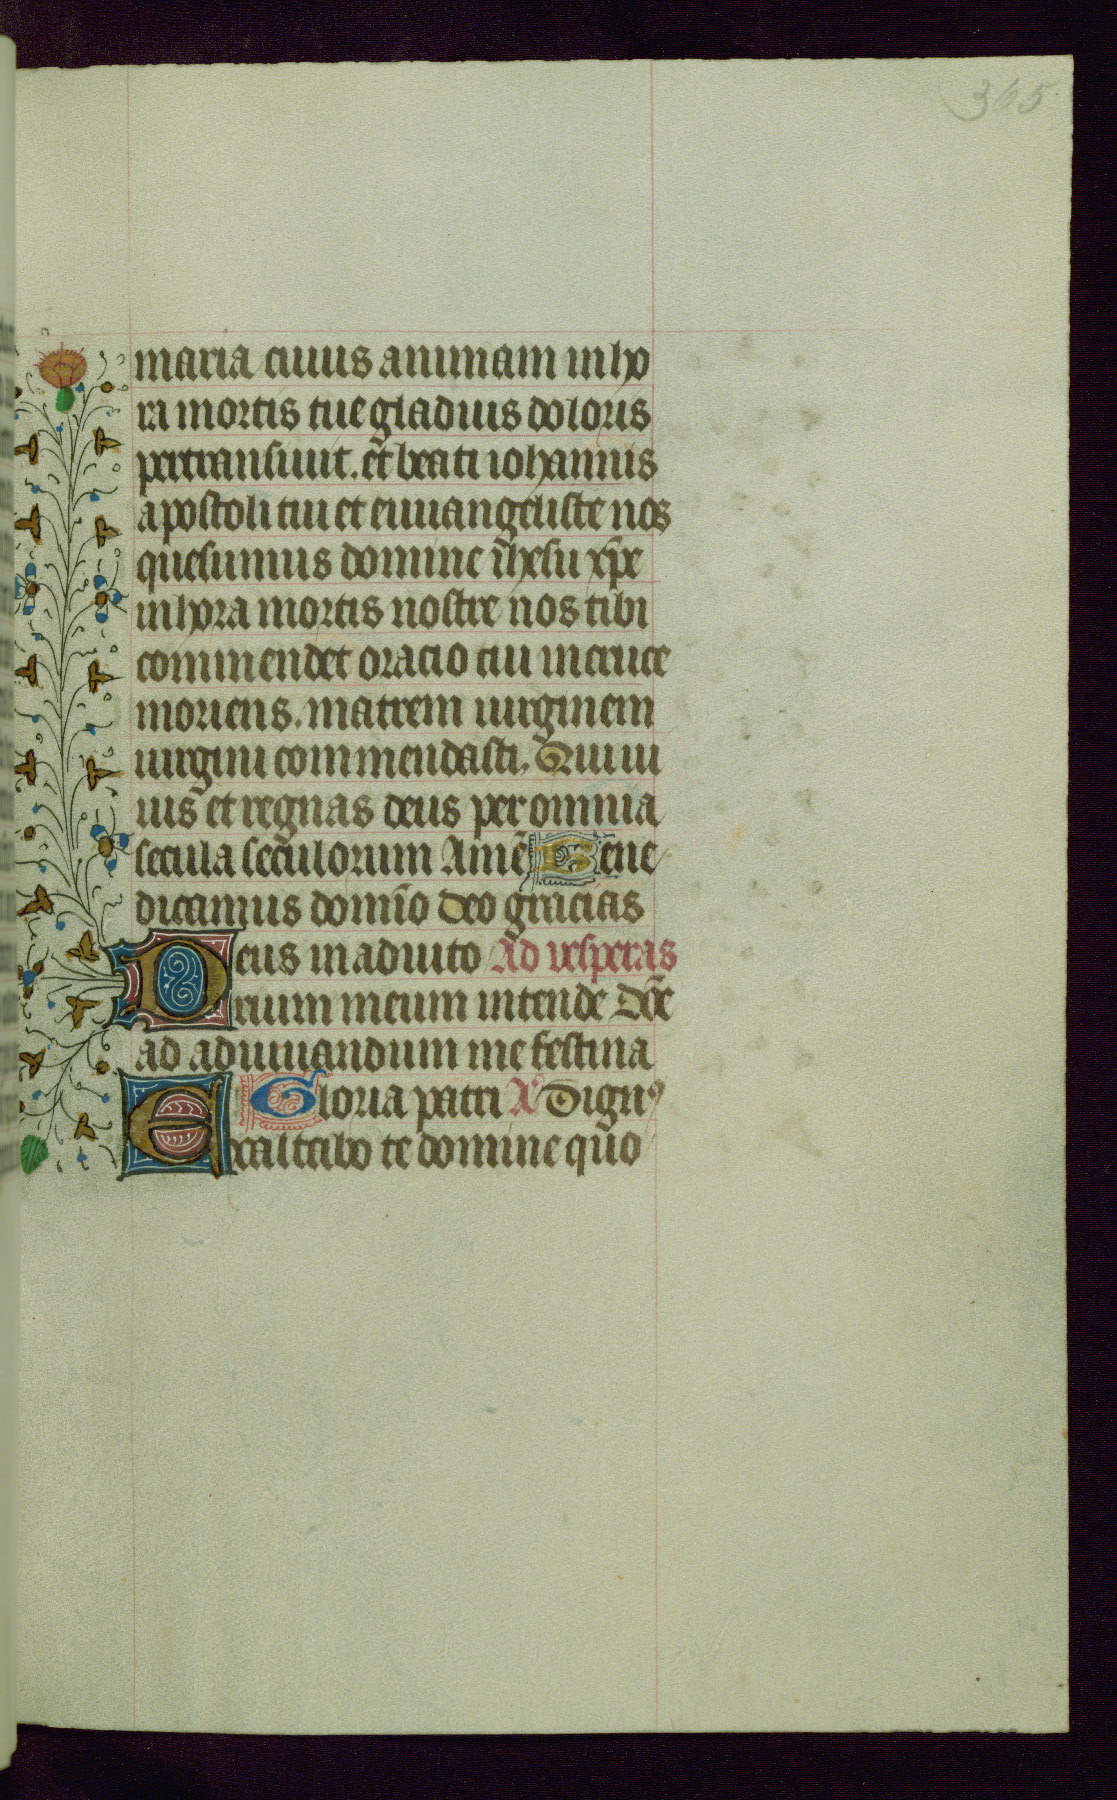 365
maria cuius animam in ho
ra mortis tue gladius doloris
pertransiuit. et beati iohannis
apostoli tui et euuangeliste nos
quesumus domine ihesu xp̄e
in hora mortis nostre nos tibi
commendet oracio tui in cruce
moriens. matrem uirginem
uirgini commendasti. Qui ui
uis et regnas deus per omnia
secula seculorum Amē Bene
dicamus domīo deo gracias
Deus in adiuto Ad vesperas
rium meum intende Dn̄e
ad adiuuandum me festina
Gloria patri A᷎ Dignꝰ
Exaltabo te domine qūo